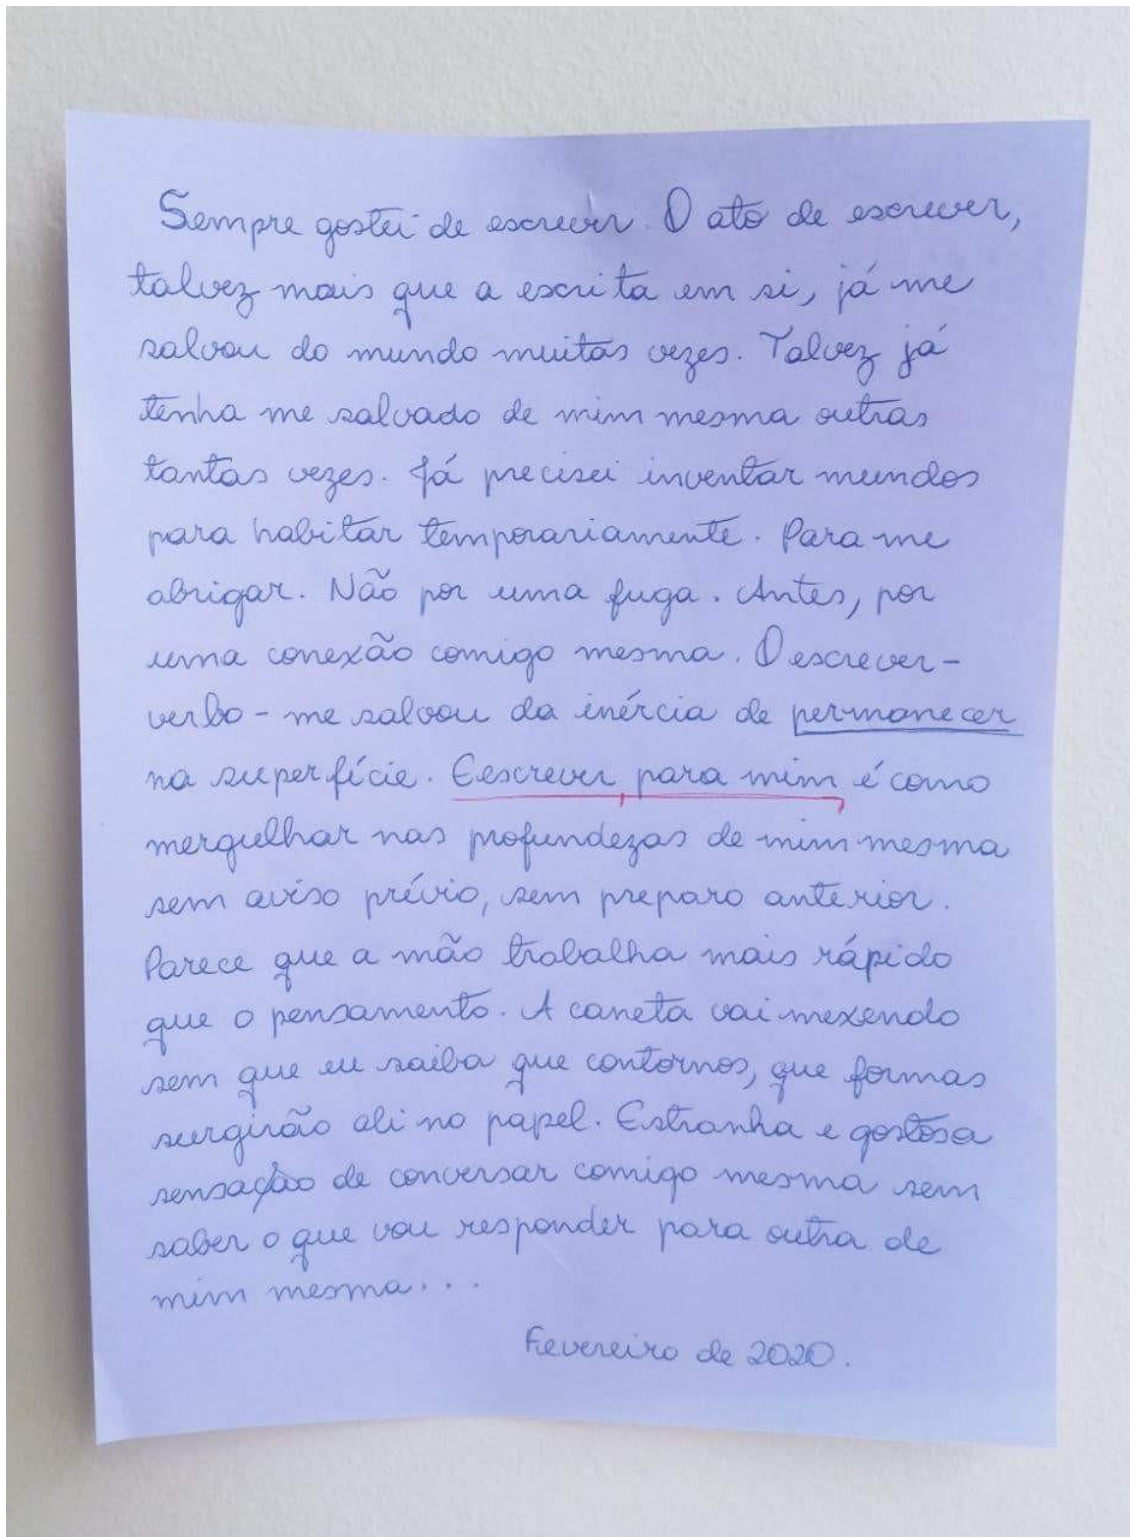 Sempre gostei de escrever. O ato de escrever,
talvez mais que a escrita em si, já me
salvou do mundo muitas vezes. Talvez já
tenha me salvado de mim mesma outras
tantas vezes. Já precisei inventar mundos
para habitar temporariamente. Para me
abrigar. Não por uma fuga. Antes, por
uma conexão comigo mesma. O escrever-
verbo - me salvou da inércia de permanecer
na superfície. Escrever, para mim, é como
mergulhar nas profundezas de mim mesma
sem aviso prévio, sem preparo anterior.
Parece que a mão trabalha mais rápido
que o pensamento. A caneta vai mexendo
sem que eu saiba que contornos, que formas
surgirão ali no papel. Estranha e gostosa
sensação de conversar comigo mesma sem
saber o que vou responder para outra de
mim mesma...
Fevereiro de 2020.